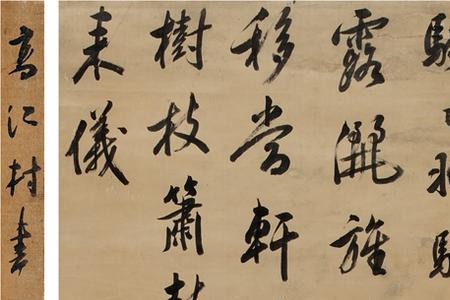 露灑旌
移當軒
樹枝簫
来儀
高江村書